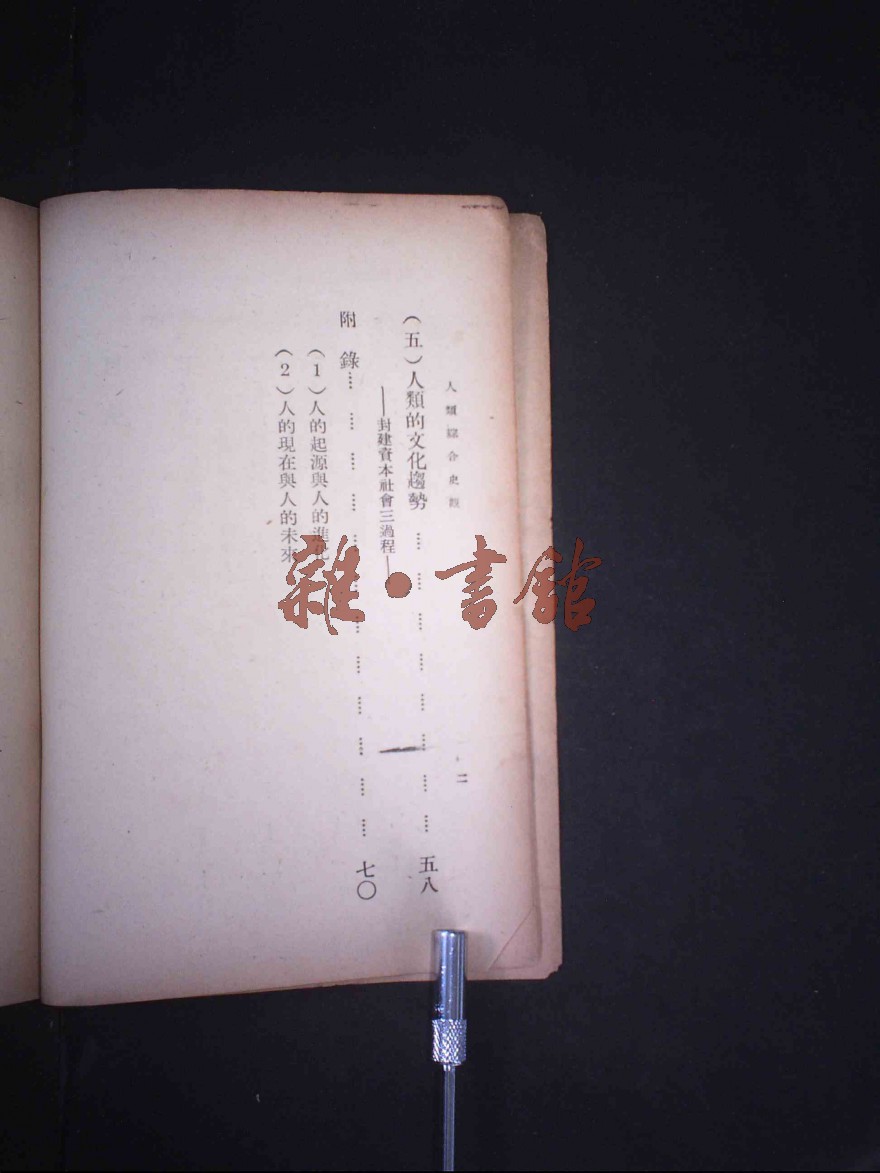 人類綜合史觀
二
（五）人類的文化趨勢………………………………五八
——封建資本社會三過程——
附　錄………………………………………………七〇
（1）人的起源與人的進化
（2）人的現在與人的未來
雜·書館